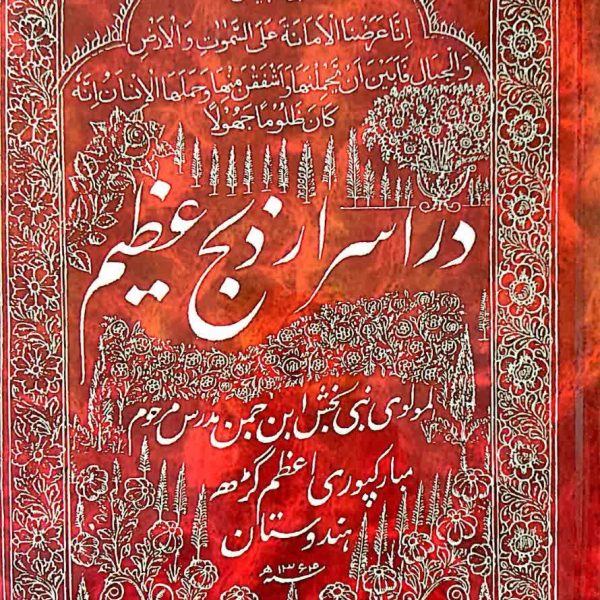 اِنَّا عَرَضْنَا الْاَمَانَةَ عَلَی السَّمٰوٰتِ وَالْاَرْضِ
وَالْجِبَالِ فَاَبَیْنَ اَنْ یَّحْمِلْنَهَا وَاَشْفَقْنَ مِنْهَا وَحَمَلَهَا الْاِنْسَانُ اِنَّهٗ
کَانَ ظَلُوْمًا جَهُوْلًا
در اسرار ذبح عظیم
لمولوی نبی بخش ابن جمن مدرس مرحوم
مبارکپوری اعظم گڑھ
هندوستان
سنه ۱۳۶۴ھ